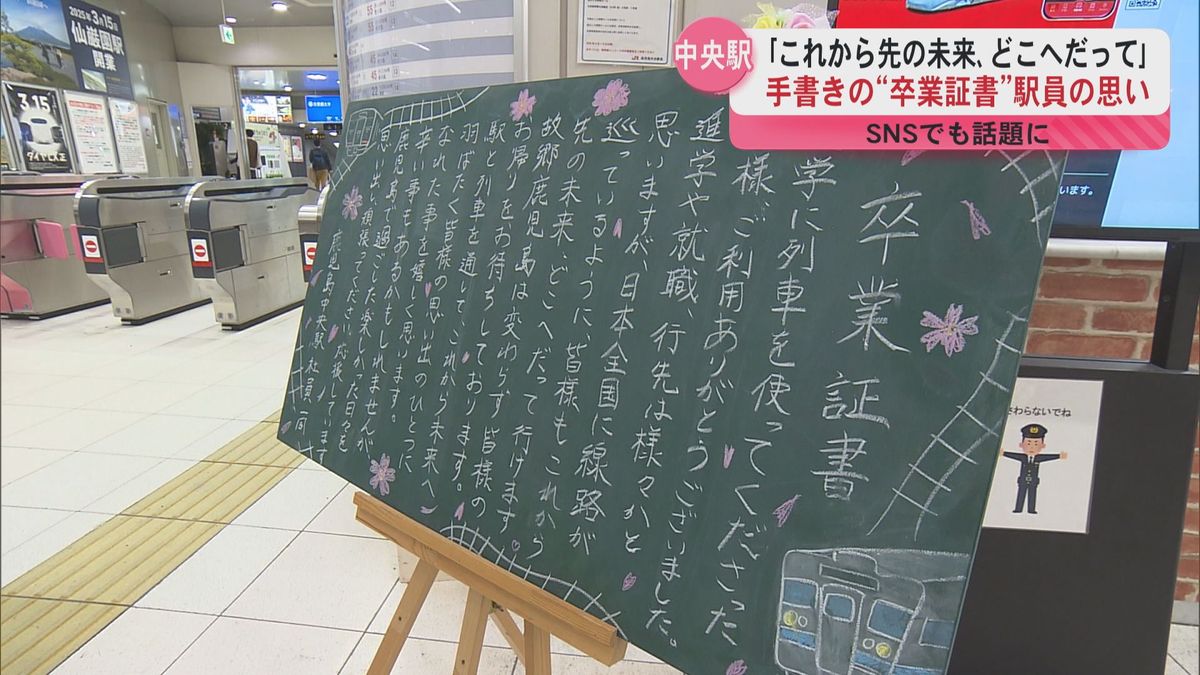 中央駅
「これから先の未来、どこへだって」
手書きの“卒業証書”駅員の思い
SNSでも話題に
2025年3月15日
仙巌園駅
開業
3.15
ダイヤ改正
卒業証書
学に列車を使ってくださった
様、ご利用ありがとうございました。
進学や就職、行先は様々かと
思いますが、日本全国に線路が
巡っているように皆様もこれから
先の未来、どこへだって行けます
故郷鹿児島は変わらず皆様の
お帰りをお待ちしております。
駅と列車を通して、これから未来へ
羽ばたく皆様の思い出のひとつに
なれた事を嬉しく思います。
辛い事もあるかもしれませんが、
鹿児島で過ごした楽しかった日々を
思い出し、頑張ってください。応援しています
鹿児島中央駅 社員一同
さわらないでね
います。